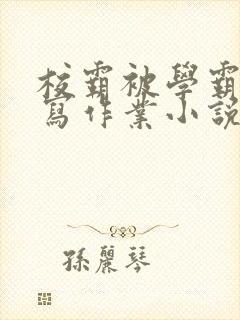 校霸被學霸
寫作業小說
孫麗琴